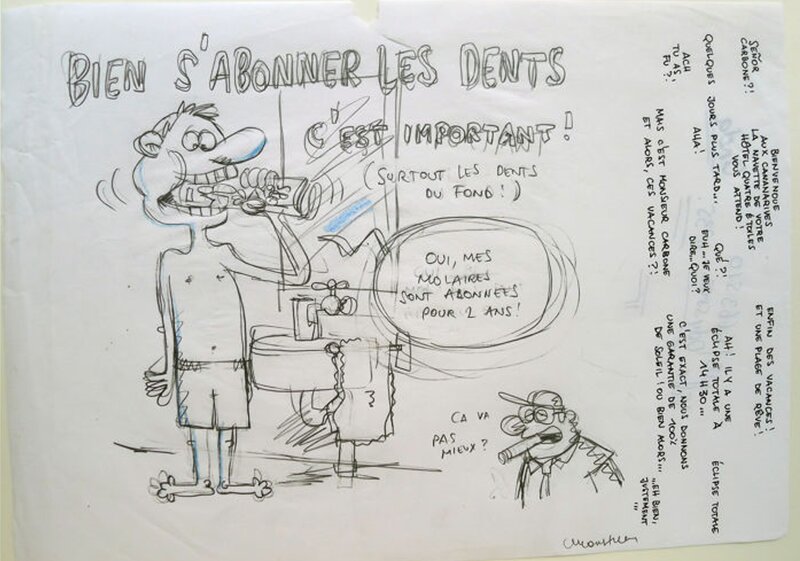 BIEN S'ABONNER LES DENTS
C'EST IMPORTANT !
(SURTOUT LES DENTS
DU FOND ! )
OUI, MES
MOLAIRES
SONT ABONNÉES
POUR 2 ANS !
ÇA VA
PAS
MIEUX ?
SEÑOR
CARBONE ?!
BIENVENOUE
AUX CANANARIVES
LA NAVETTE DE VOTRE
HÔTEL QUATRE ÉTOILES
VOUS ATTEND !
ENFIN DES VACANCES !
ET UNE PLAGE DE RÊVE !
QUELQUES JOURS PLUS TARD...
AHA !
QUÉ ?!
EUH... JE VEUX
DIRE... QUOI ?
AH ! IL Y A UNE
ÉCLIPSE TOTALE À
14H30...
ÉCLIPSE TOTALE
ACH
TU AS
FU ?!
MAIS C'EST MONSIEUR CARBONE
ET ALORS, CES VACANCES ?!
C'EST EXACT, NOUS DONNONS
UNE GARANTIE DE 100%
DE SOLEIL ! OU BIEN ALORS...
...EH BIEN,
JUSTEMENT
...